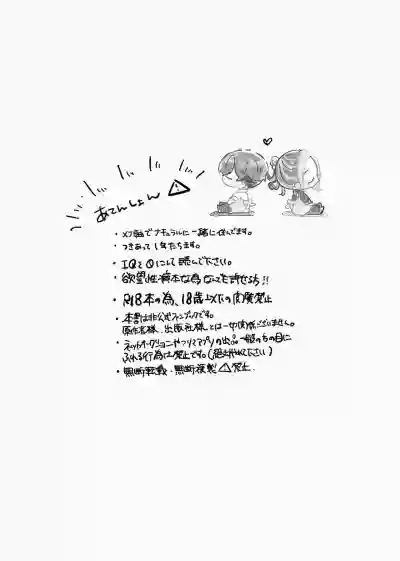 あてんしょん
・メフ軸でナチュラルに一緒に住んでます。
・つきあって1年たちます。
・IQを0にして読んで下さい。
・欲望性癖本な為なんでも許せる方!!
・R18本の為、18歳以下の閲覧禁止
・本書は非公式ファンブックです。
原作者様、出版社様とは一切関係ございません。
・ネットオークションやフリマアプリの出品、一般の方の目に
ふれる行為は禁止です。(絶対やめて下さい)
・無断転載・無断複製 禁止.